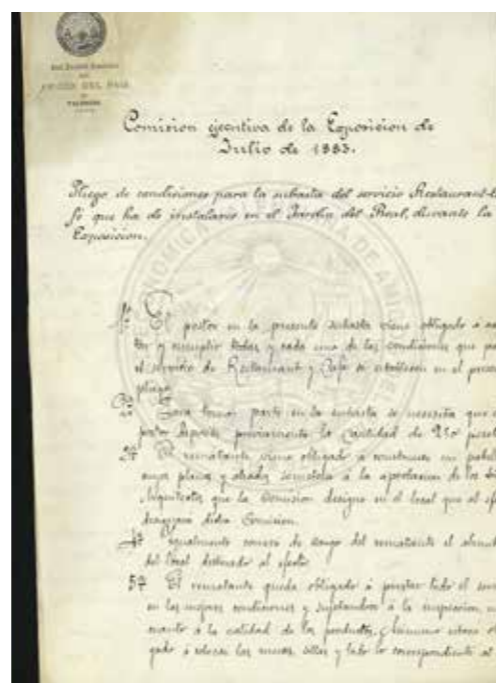 AMIGOS DEL PAIS
VALENCIA
Comision ejecutiva de la Exposicion de
Julio de 1883.
Pliego de condiciones para la subasta del servicio Restaurant-C
fé que ha de instalarse en el Jardin del Real, durante la
Exposicion.
1ª El postor en la presente subasta viene obligado á
tar y cumplir todas y cada una de las condiciones que pa
el servicio de Restaurant y Café se establecen en el prese
pliego.
2ª Para tomar parte en la subasta se necesita que
postor deposite previamente la cantidad de 250 peset
3ª El rematante viene obligado á construir un pabel
cuyos planos y alzados someterá á la aprobacion de los
Arquitectos que la Comision designe en el local que al efe
dicha Comision.
4ª Igualmente correrá de cargo del rematante el alumb
del local destinado al efecto.
5ª El rematante queda obligado á prestar todo el serv
en las mejores condiciones y sujetandose á la inspeccion, en
cuanto á la calidad de los productos, Asimismo viene obl
gado á colocar las mesas, sillas y todo lo correspondiente al